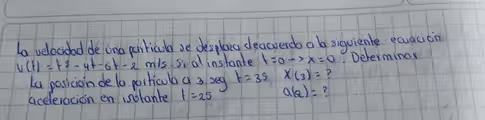 La velocidad de una particula se desplaza deacuerdo a la siguiente ecuación
v(t) = t³ - 4t - 6t - 2 m/s si al instante t=0 -> x=0. Determinar
La posición de la particula a 3 seg t=3s x(3)=?
aceleración en instante t=2s a(2)=?